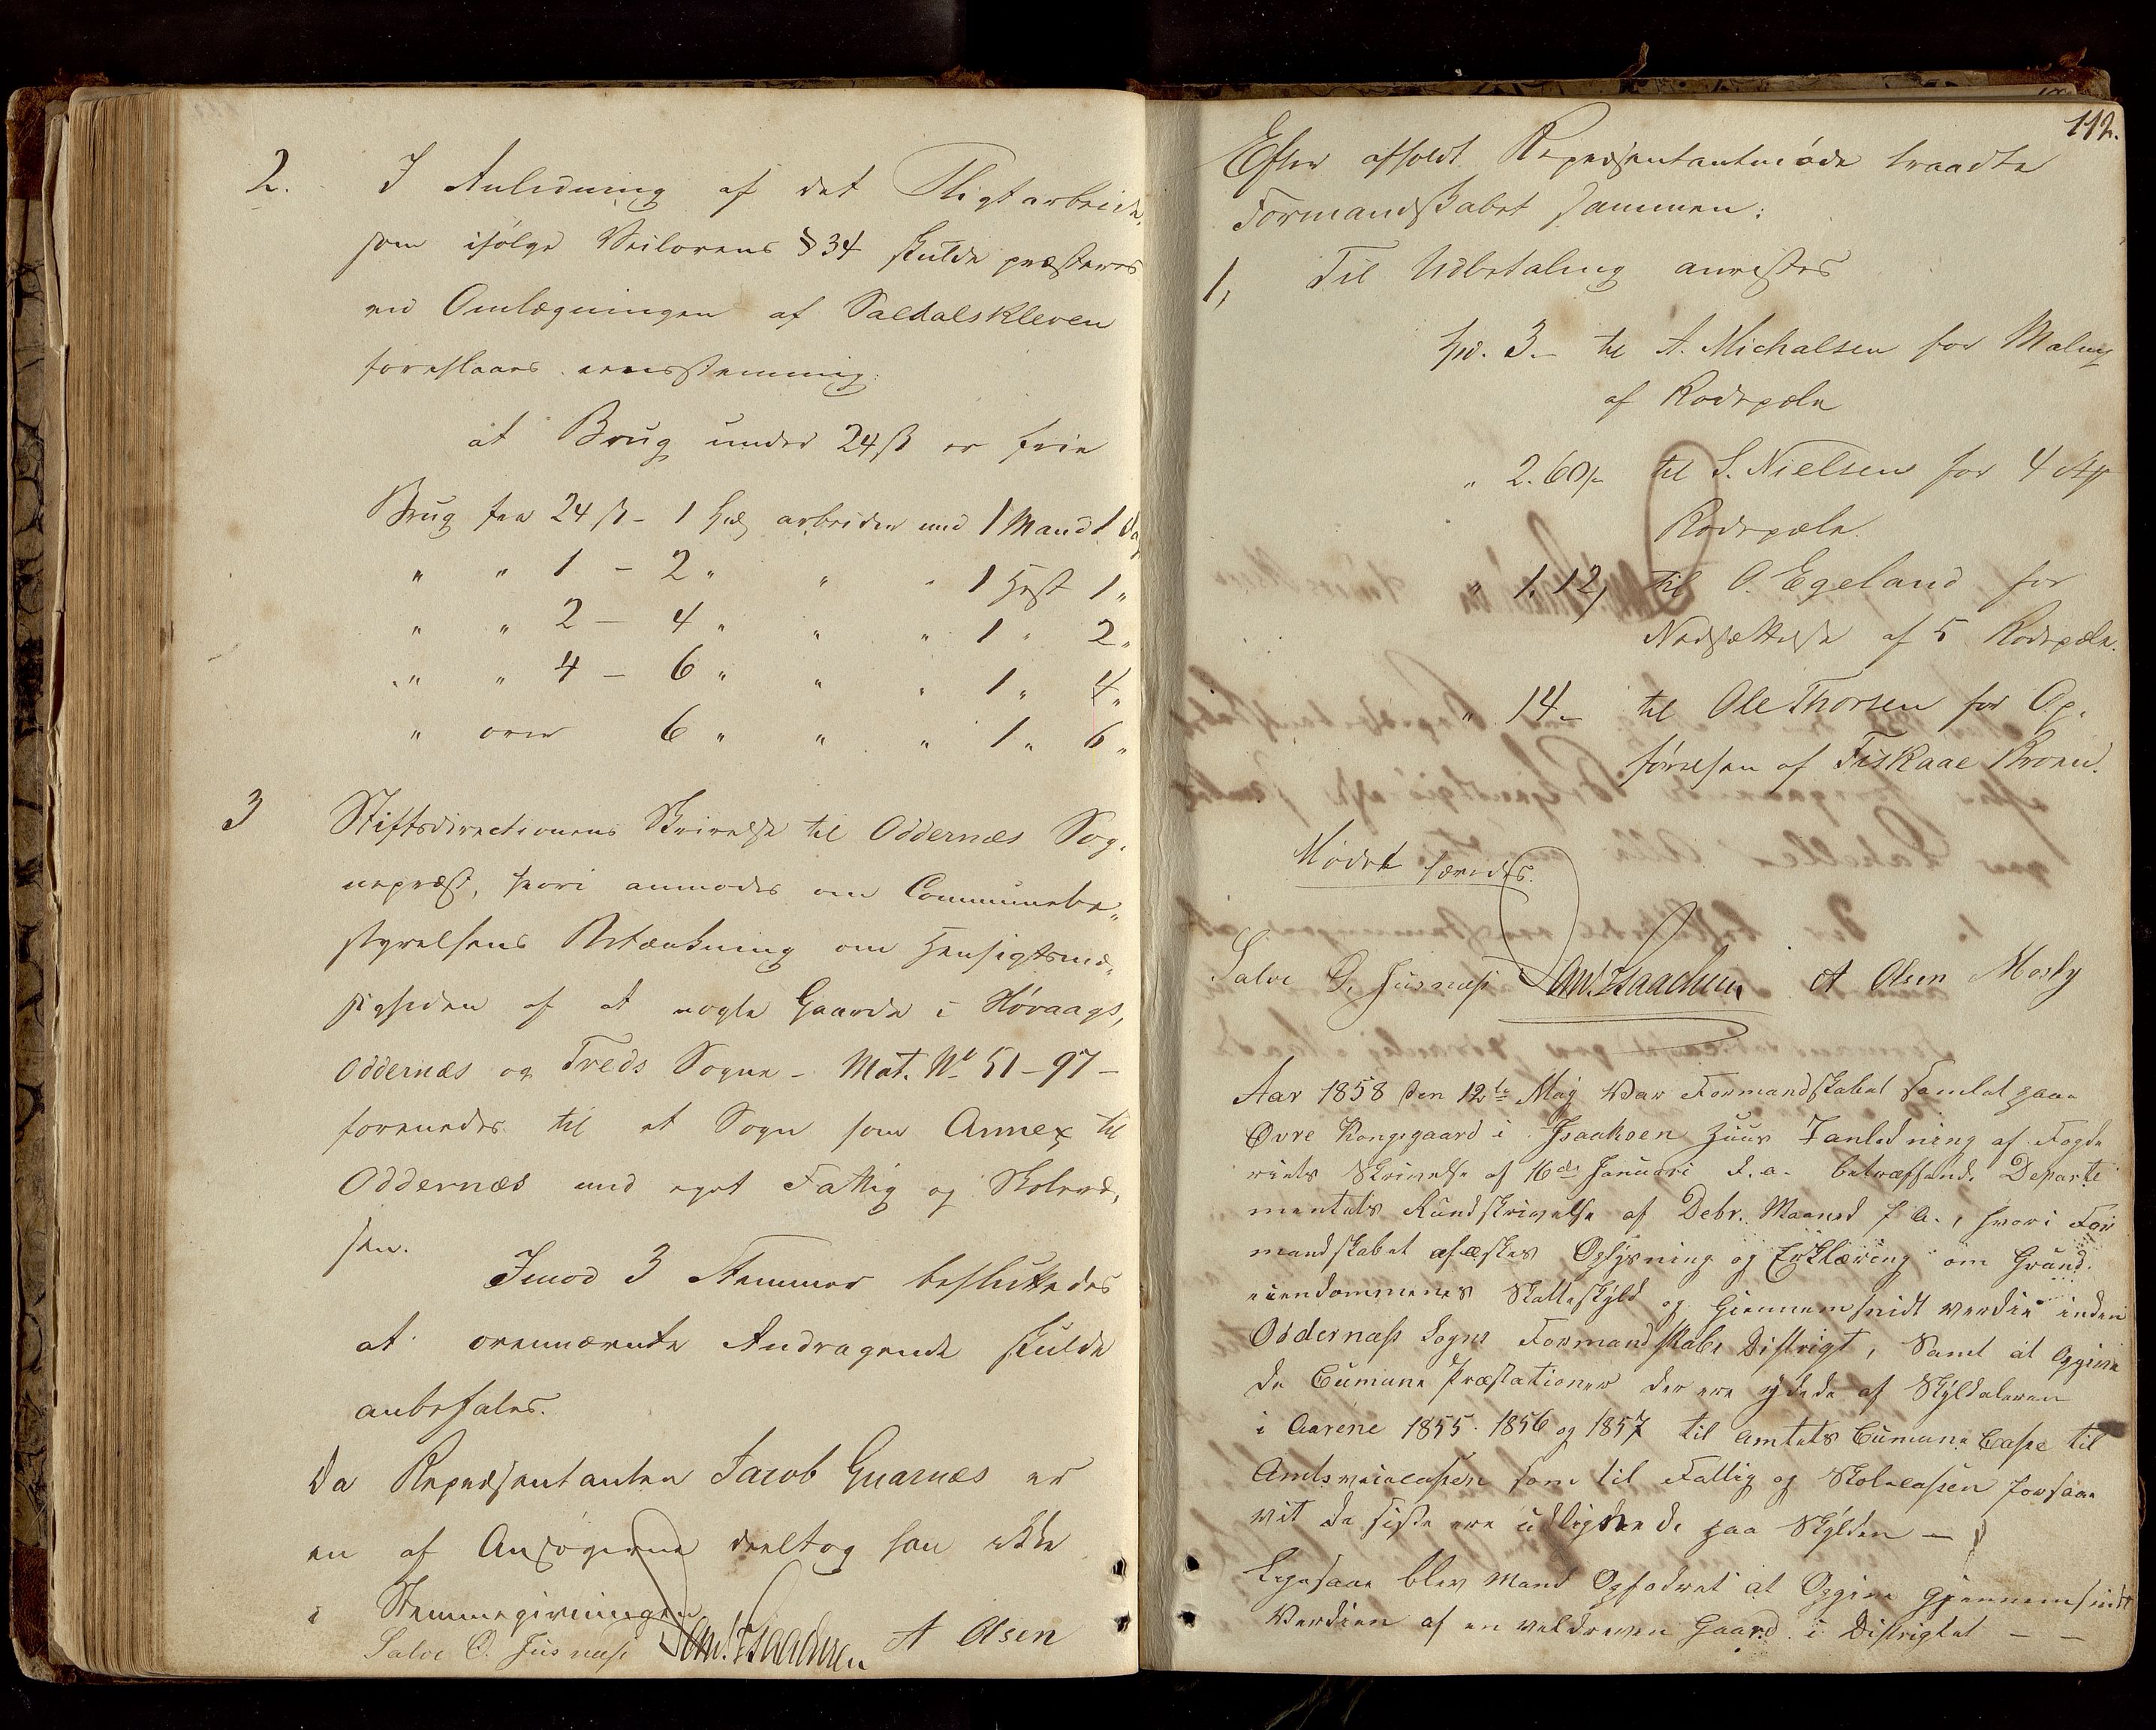 2. I Anledning af det Pligtarbeide,
som ifølge Veilovens § 34 skulde præsteres
ved Omlægningen af Saedalskleven
foreslaaes eensstemmig:
at Brug under 24 ß er frie
Brug fra 24 ß - 1 arbeider med 1 Mand 1 Dag
" " 1 - 2 " " " 1 Hest 1 "
" " 2 - 4 " " " 1 " 2 "
" " 4 - 6 " " " 1 " 4 "
" over 6 " " " 1 " 6 "
3 Stiftsdirectionens Skrivelse til Oddernæs Sog-
nepræst, hvori anmodes om Communebe-
styrelsens Betænkning om Hensigtsmæs-
sigheden af at nogle Gaarde i Høvaags,
Oddernæs og Treds Sogne - Mat. No 51 - 97 -
forenedes til et Sogn som Annex til
Oddernæs med eget Fattig og Skolevæ-
sen.
Imod 3 Stemmer besluttedes
at ovennævnte Andragende skulde
anbefales.
Da Repræsentanten Jacob Gnarnæs er
en af Ansøgerne deeltog han ikke
i Stemmegivningen
Salve O. Jusnæss Dan. Isaachsen A Olsen
112.
Efter afholdt Repræsentantmøde traadte
Formandskabet sammen:
1, Til Udbetaling anvistes
Spd. 3.- til A. Michalsen for Maling
af Rodepæle
" 2.60 ß til S. Nielsen for 4 Stk
Rodepæle.
" 1.12, til O. Egeland for
Nedsættelse af 5 Rodepæle.
" 14 - til Ole Thorsen for Op-
førelsen af Fiskaae Broen.
Mødet hævedes.
Salve O. Jusnæss Dan. Isaachsen A Olsen Mosby
Aar 1858 den 12te Maj Var Formandskabet Samlet paa
Øvre Kongsgaard i Isaaksen Huus I anledning af Fogde
riets Skrivelse af 16de Januari d. a. betræffende Departe
mentets Rundskrivelse af Debr. Maaned f. A., hvori For
mandskabet afæskes Oplysning og Erklæring om Grund-
eiendommenes Skatteskyld og Giennemsnidt verdie inden
Oddernæss Sogns Formandskabs Distrigt, Samt at Opgive
de Cumune Præstationer der ere ydede af Skyldaleren
i Aarene 1855. 1856 og 1857 til Amtets Cumune Casse til
Amtsveicassen som til Fattig og Skolecassen forsaa
vit de siste ere udlignede paa Skylden —
Ligesaa blev Mand Opfodret at Opgive Gjennemsnidt
Verdien af en veldreven Gaard i Distrigtet — —